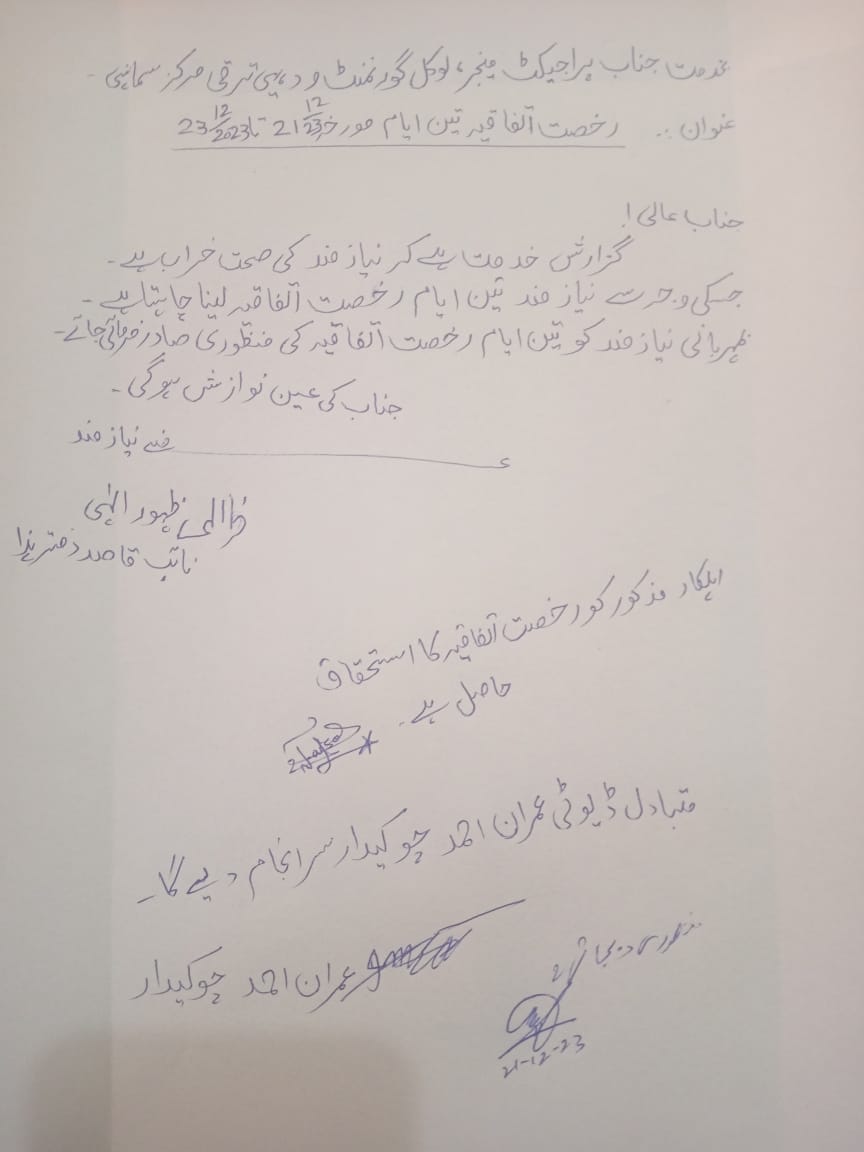 بخدمت جناب پراجیکٹ منیجر، لوکل گورنمنٹ و دیہی ترقی مرکز سماہنی۔
عنوان :. رخصت اتفاقیہ تین ایام مورخہ 21 12/23 تا 23 12/2023
جناب عالی!
گزارش خدمت ہے کہ نیاز مند کی صحت خراب ہے۔
جسکی وجہ سے نیاز مند تین ایام رخصت اتفاقیہ لینا چاہتا ہے۔
مہربانی نیاز مند کو تین ایام رخصت اتفاقیہ کی منظوری صادر فرمائی جائے۔
جناب کی عین نوازش ہوگی۔
نیاز مند
ظہور الہی
نائب قاصد دفتر ہذا
اہلکار مذکور کو رخصت اتفاقیہ کا استحقاق
حاصل ہے۔
متبادل ڈیوٹی عمران احمد چوکیدار سرانجام دیے گا۔
عمران احمد چوکیدار
21-12-23